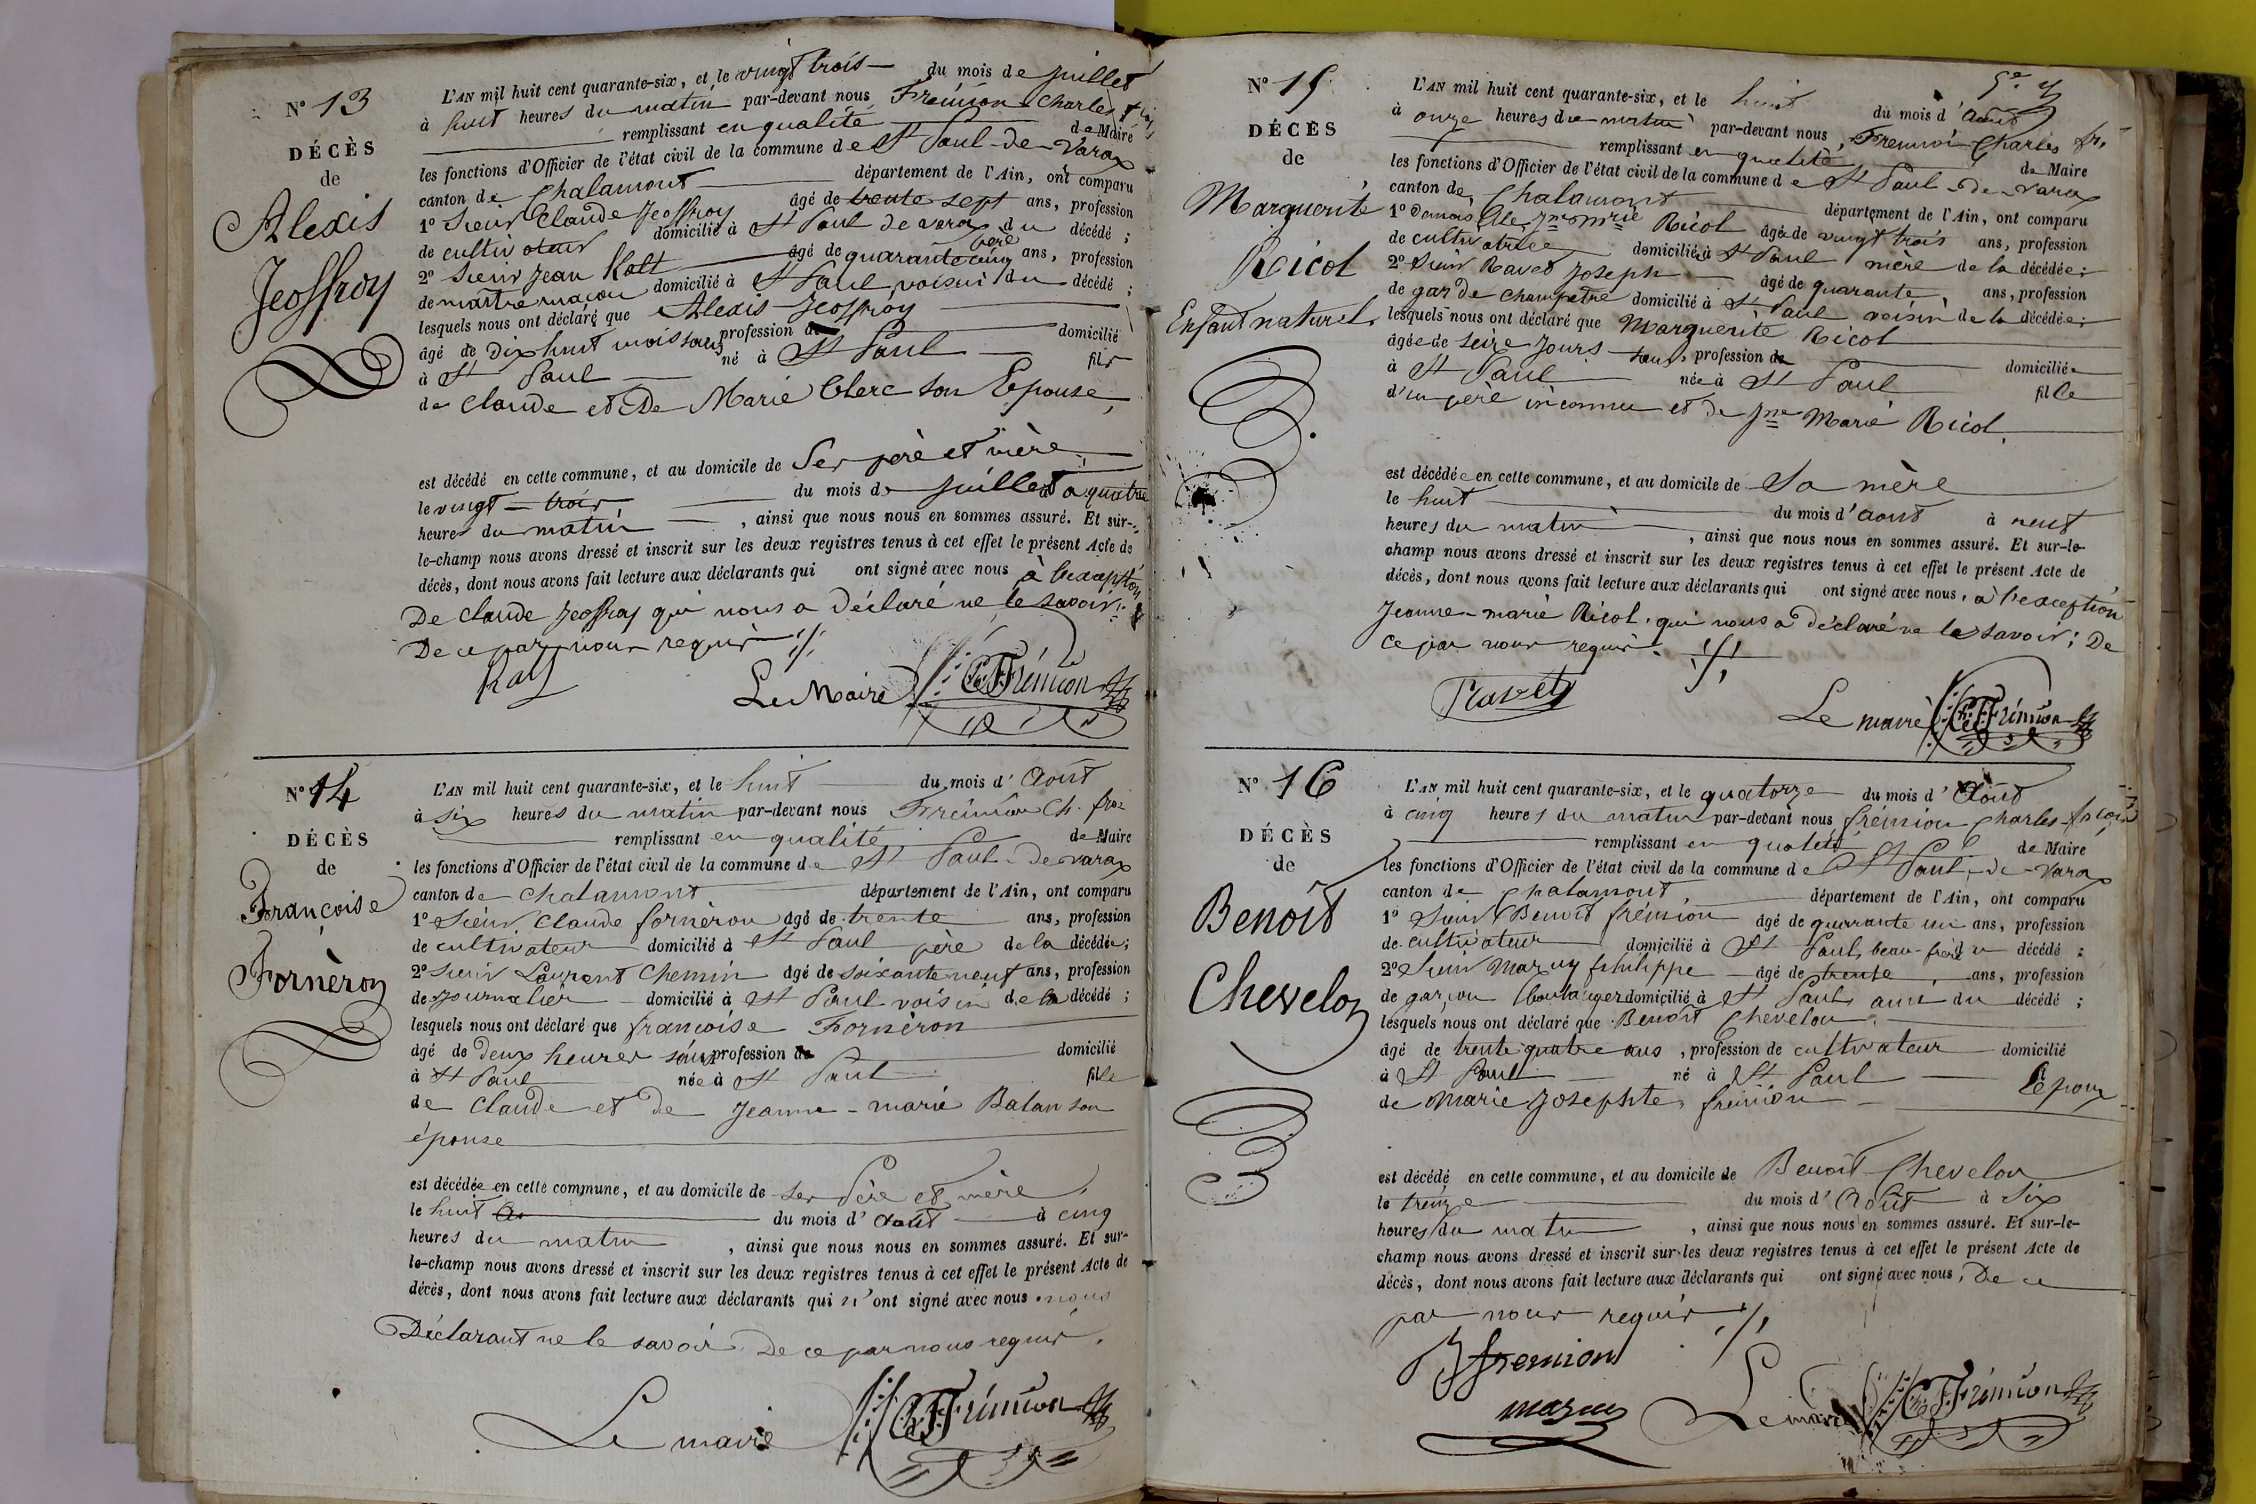 N° 13
DÉCÈS
de
Alexis
Jeoffroy
L'AN mil huit cent quarante-six, et le vingt trois du mois de juillet
à huit heures du matin par-devant nous Frémion Charles
remplissant en qualité de Maire
les fonctions d'Officier de l'état civil de la commune de St Paul-de-Varax
canton de Chalamont département de l'Ain, ont comparu
1° Sieur Claude Jeoffroy âgé de trente sept ans, profession
de cultivateur domicilié à St Paul de varax père du décédé ;
2° Sieur Jean âgé de quarante cinq ans, profession
de maître maçon domicilié à St Paul voisin du décédé ;
lesquels nous ont déclaré que Alexis Jeoffroy
âgé de Dix huit mois profession de domicilié
à St Paul né à St Paul fils
de Claude et De Marie Clerc son Epouse,
est décédé en cette commune, et au domicile de Ses père et mère
le vingt-trois du mois de juillet à quatre
heures du matin , ainsi que nous nous en sommes assuré. Et sur-
le-champ nous avons dressé et inscrit sur les deux registres tenus à cet effet le présent Acte de
décès, dont nous avons fait lecture aux déclarants qui ont signé avec nous à l'exception
De Claude Jeoffroy qui nous a Déclaré ne le savoir
De ce par nous requis ./.
Le Maire Ch. F. Frémion
N° 14
DÉCÈS
de
Françoise
Fornèron
L'AN mil huit cent quarante-six, et le huit du mois d' Août
à six heures du matin par-devant nous Frémion Ch. fros
remplissant en qualité de Maire
les fonctions d'Officier de l'état civil de la commune de St Paul-de varax
canton de Chalamont département de l'Ain, ont comparu
1° Sieur Claude fornèron âgé de trente ans, profession
de cultivateur domicilié à St Paul père de la décédée ;
2° Sieur Laurent Chemin âgé de soixante neuf ans, profession
de journalier domicilié à St Paul voisin de la décédé ;
lesquels nous ont déclaré que françoise Fornèron
âgé de deux heures profession de domicilié
à St Paul née à St Paul fille
de Claude et de Jeanne-marie Balan son
épouse
est décédée en cette commune, et au domicile de ses Père et mère,
le huit du mois d' Août à cinq
heures du matin , ainsi que nous nous en sommes assuré. Et sur-
le-champ nous avons dressé et inscrit sur les deux registres tenus à cet effet le présent Acte de
décès, dont nous avons fait lecture aux déclarants qui n'ont signé avec nous nous
Déclarant ne le savoir De ce par nous requis.
Le maire Ch. F. Frémion
N° 15
DÉCÈS
de
Marguerite
Ricol
Enfant naturel
L'AN mil huit cent quarante-six, et le huit du mois d' Août
à onze heures du matin par-devant nous, Fremion Charles fr.
remplissant en qualité de Maire
les fonctions d'Officier de l'état civil de la commune de St Paul-de-varax
canton de Chalamont département de l'Ain, ont comparu
1° Demoiselle Jne Mrie Ricol âgée de vingt trois ans, profession
de cultivatrice domiciliée à St Paul mère de la décédée ;
2° Sieur Ravet Joseph âgé de quarante ans, profession
de garde champetre domicilié à St Paul voisin de la décédée ;
lesquels nous ont déclaré que Marguerite Ricol
âgée de seize jours , profession de domiciliée
à St Paul née à St Paul fille
d'un père inconnu et de Jne Marie Ricol.
est décédée en cette commune, et au domicile de Sa mère
le huit du mois d' aout à neuf
heures du matin , ainsi que nous nous en sommes assuré. Et sur-le-
champ nous avons dressé et inscrit sur les deux registres tenus à cet effet le présent Acte de
décès, dont nous avons fait lecture aux déclarants qui ont signé avec nous, à l'exception
Jeanne-marie Ricol. qui nous a déclaré ne le savoir ; De
ce par nous requis. ./.
Ravet
Le maire Ch. F. Frémion
N° 16
DÉCÈS
de
Benoît
Chevelon
L'AN mil huit cent quarante-six, et le quatorze du mois d' Août
à cinq heures du matin par-devant nous frémion Charles
remplissant en qualité de Maire
les fonctions d'Officier de l'état civil de la commune de St Paul-de-Varax
canton de Chalamont département de l'Ain, ont comparu
1° Sieur Benoit frémion âgé de quarante un ans, profession
de cultivateur domicilié à St Paul, beau-frère du décédé ;
2° Sieur Mazuy philippe âgé de trente ans, profession
de garçon boulanger domicilié à St Paul ami du décédé ;
lesquels nous ont déclaré que Benoît Chevelon
âgé de trente quatre ans , profession de cultivateur domicilié
à St Paul né à St Paul Epoux
de Marie Josephte frémion
est décédé en cette commune, et au domicile de Benoit Chevelon
le treize du mois d' Août à six
heures du matin , ainsi que nous nous en sommes assuré. Et sur-le-
champ nous avons dressé et inscrit sur les deux registres tenus à cet effet le présent Acte de
décès, dont nous avons fait lecture aux déclarants qui ont signé avec nous, De ce
par nous requis ./.
B fremion
mazuy
Le maire Ch. F. Frémion